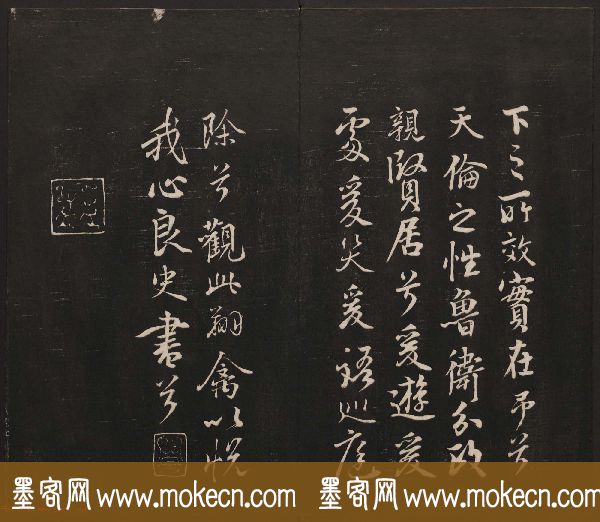 下之所效實在予兮
天倫之性魯衛分政
親賢居兮爰遊爰
處爰笑爰語巡庭
除兮觀此翔禽以悅
我心良史書兮
墨客网 www.mokecn.com 墨客网 www.mokecn.com